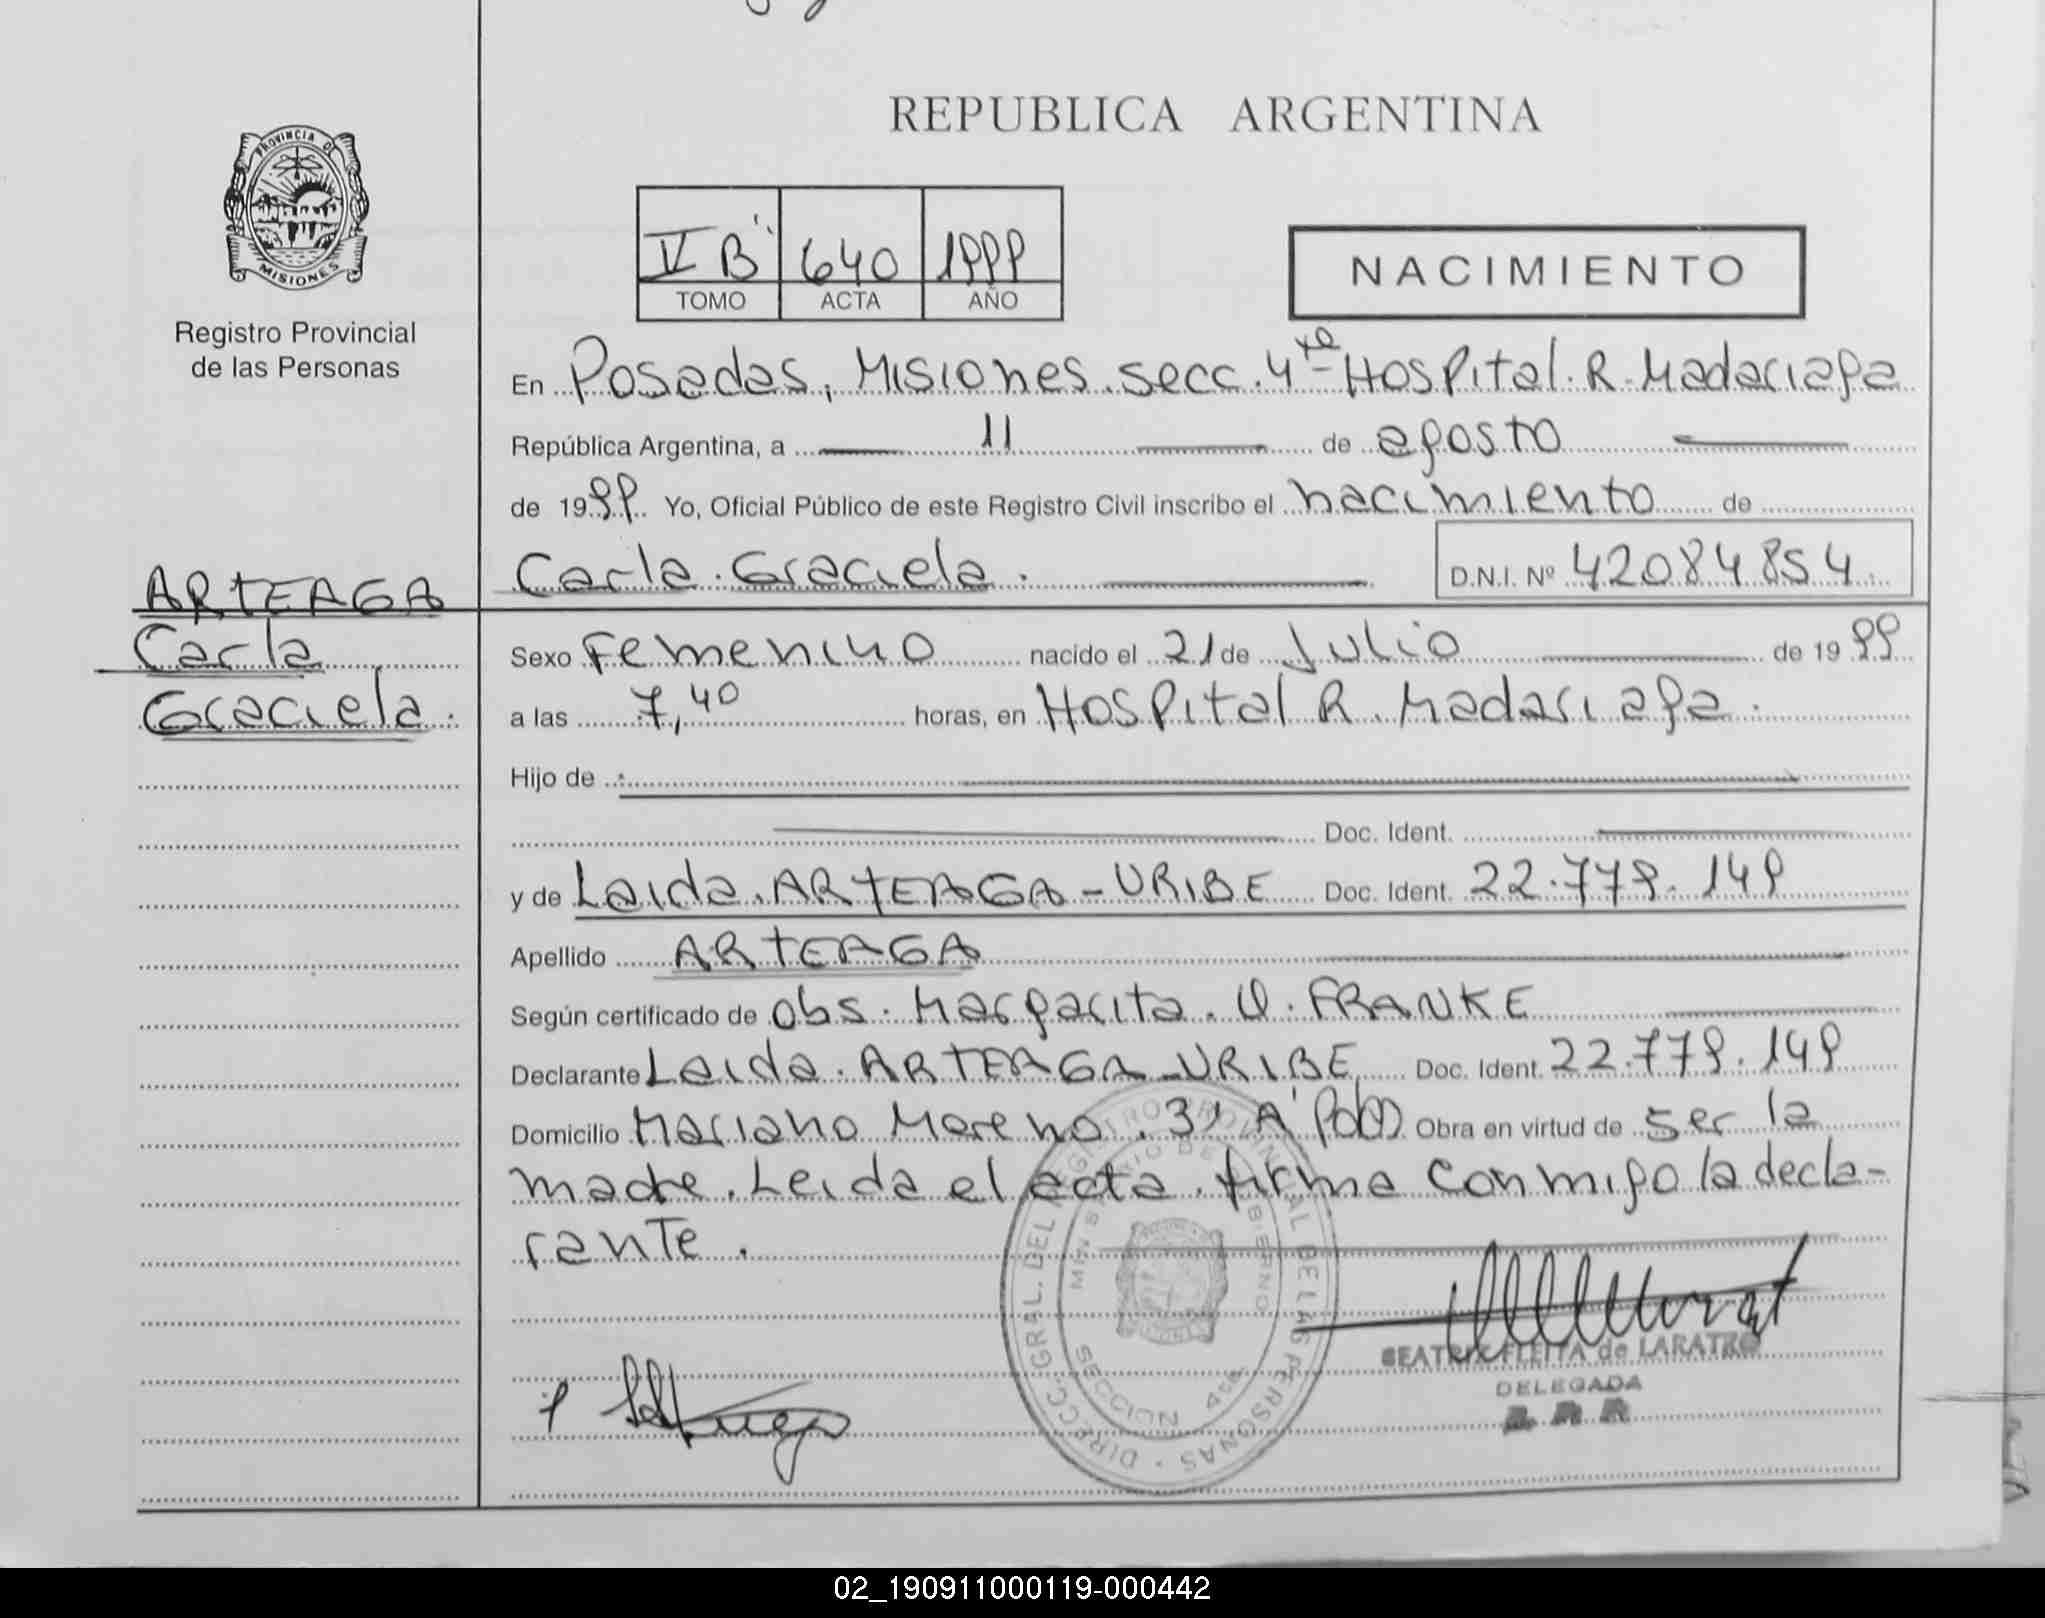 REPUBLICA ARGENTINA
PROVINCIA DE
MISIONES
Registro Provincial
de las Personas
V B' 640 1999
TOMO ACTA AÑO
NACIMIENTO
En Posadas, Misiones. secc. 4ta Hospital. R. Madariaga
República Argentina, a 11 de agosto
de 1999. Yo, Oficial Público de este Registro Civil inscribo el nacimiento de
Carla. Graciela. D.N.I. Nº 42084854.
ARTEAGA
Carla
Graciela.
Sexo Femenino nacido el 21 de Julio de 1999
a las 7,40 horas, en Hospital R. Madariaga.
Hijo de
Doc. Ident.
y de Leida. ARTEAGA-URIBE Doc. Ident. 22.779.149
Apellido ARTEAGA
Según certificado de Obs. Margarita. FRANKE
Declarante Leida. ARTEAGA-URIBE Doc. Ident. 22.779.149
Domicilio Mariano Moreno. 31 A' Obra en virtud de ser la
madre. Leida el acta. firma conmigo la decla-
rante.
DIRECC. GRAL. DEL REGISTRO PROVINCIAL DE LAS PERSONAS
MINISTERIO DE GOBIERNO
SECCION 4ta
BEATRIX FLEITA de LARATRO
DELEGADA
02_190911000119-000442